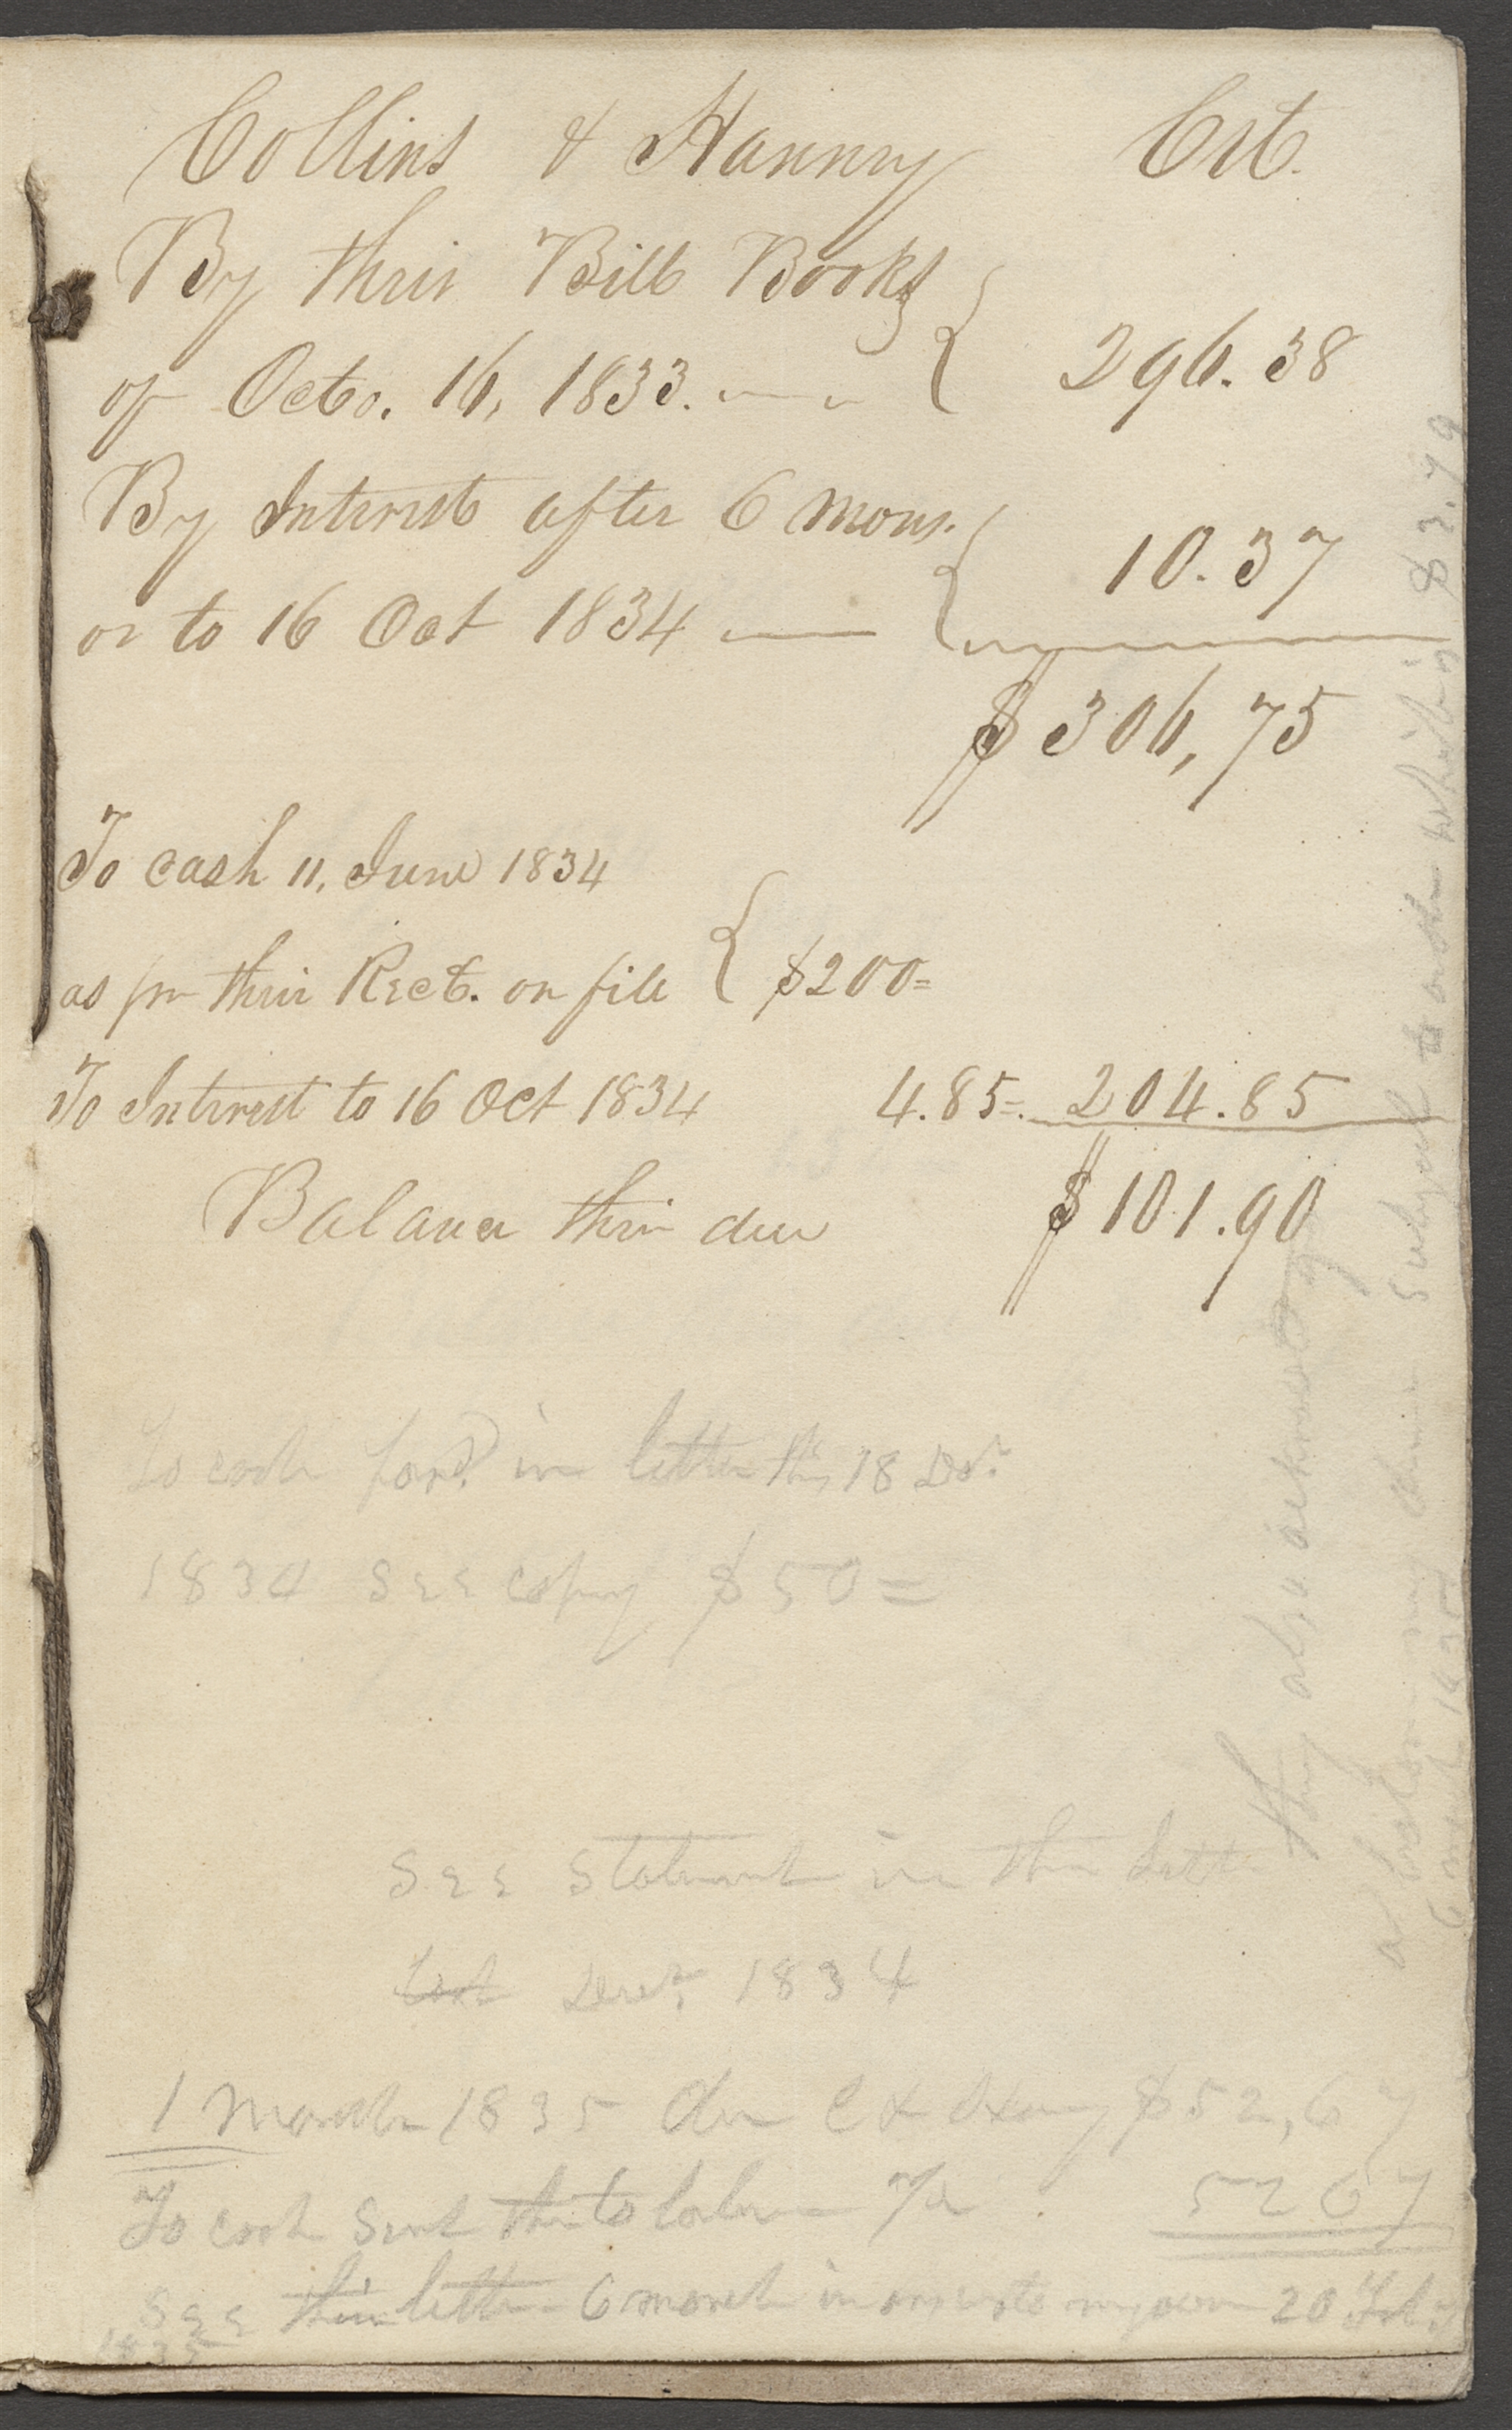 Collins & Hannay Crt.
By their Bill Books
of Octo. 16, 1833. 296.38
By Interest after 6 Mons.
or to 16 Oct 1834 10.37
$306,75
To Cash 11, June 1834
as pr their Rect. on file $200=
To Interest to 16 Oct 1834 4.85=. 204.85
Balance their due $101.90
To cash ford. in letter 18 Decr.
1834 See Copy $50=
See Statement in their letter
Decr. 1834
1 March 1835 due C & Hannay $52,67
To cash sent to balance 52 67
See their letter 6 March in answer to my own 20 Feby
1835
they also acknowledge
6 March 1835
$3.79